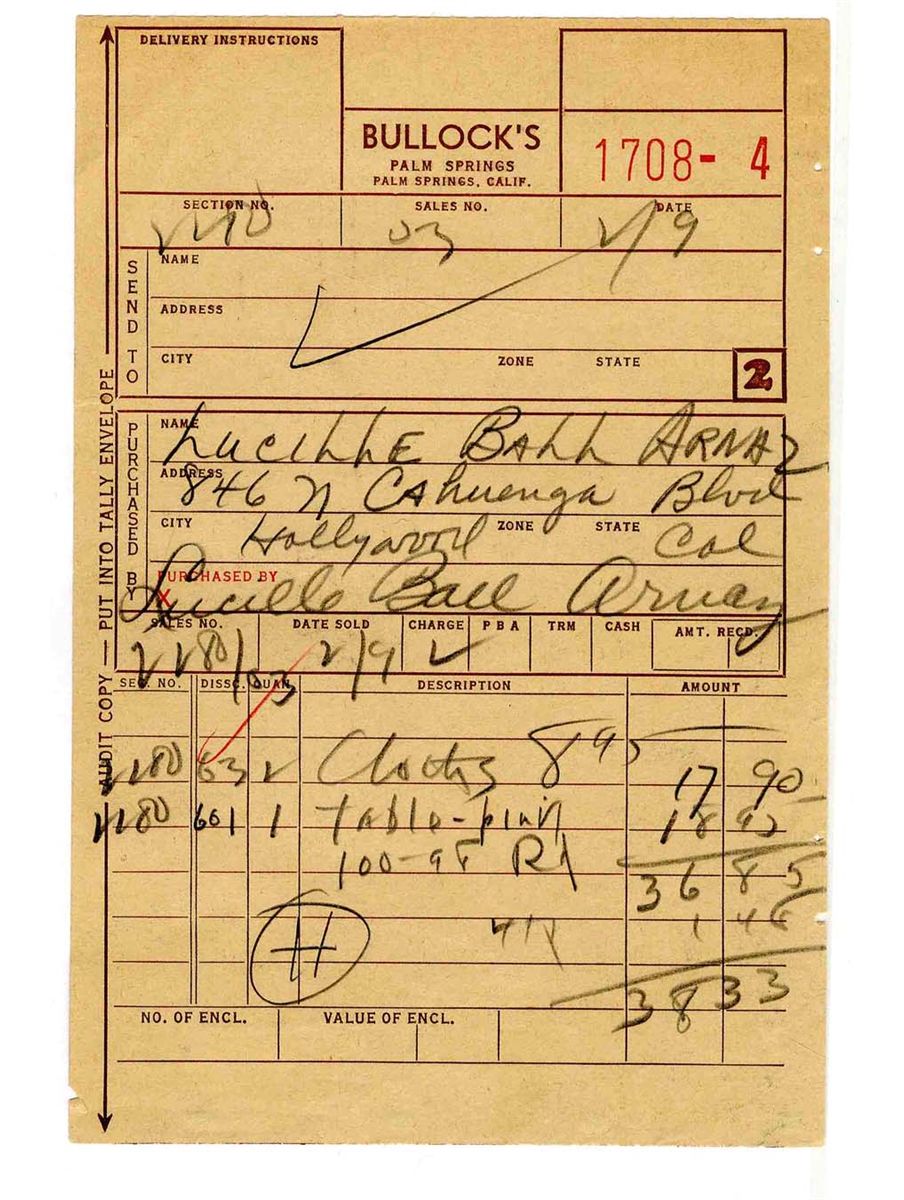 DELIVERY INSTRUCTIONS
BULLOCK'S
PALM SPRINGS
PALM SPRINGS, CALIF.
1708- 4
SECTION NO. SALES NO. DATE
2280 03 2/9
SEND TO
NAME
ADDRESS
CITY ZONE STATE
2
PURCHASED BY
NAME LUCILLE BALL ARNAZ
ADDRESS 846 N Cahuenga Blvd
CITY Hollywood ZONE STATE Cal
PURCHASED BY
X Lucille Ball Arnaz
SALES NO. DATE SOLD CHARGE PBA TRM CASH AMT. RECD.
2280/03 2/9
SEC. NO. DISSC. QUAN. DESCRIPTION AMOUNT
2280 63 2 8 95 17 90
2280 601 1 Table- 18 95
100-98 36 85
H 1 48
38 33
NO. OF ENCL. VALUE OF ENCL.
AUDIT COPY — PUT INTO TALLY ENVELOPE